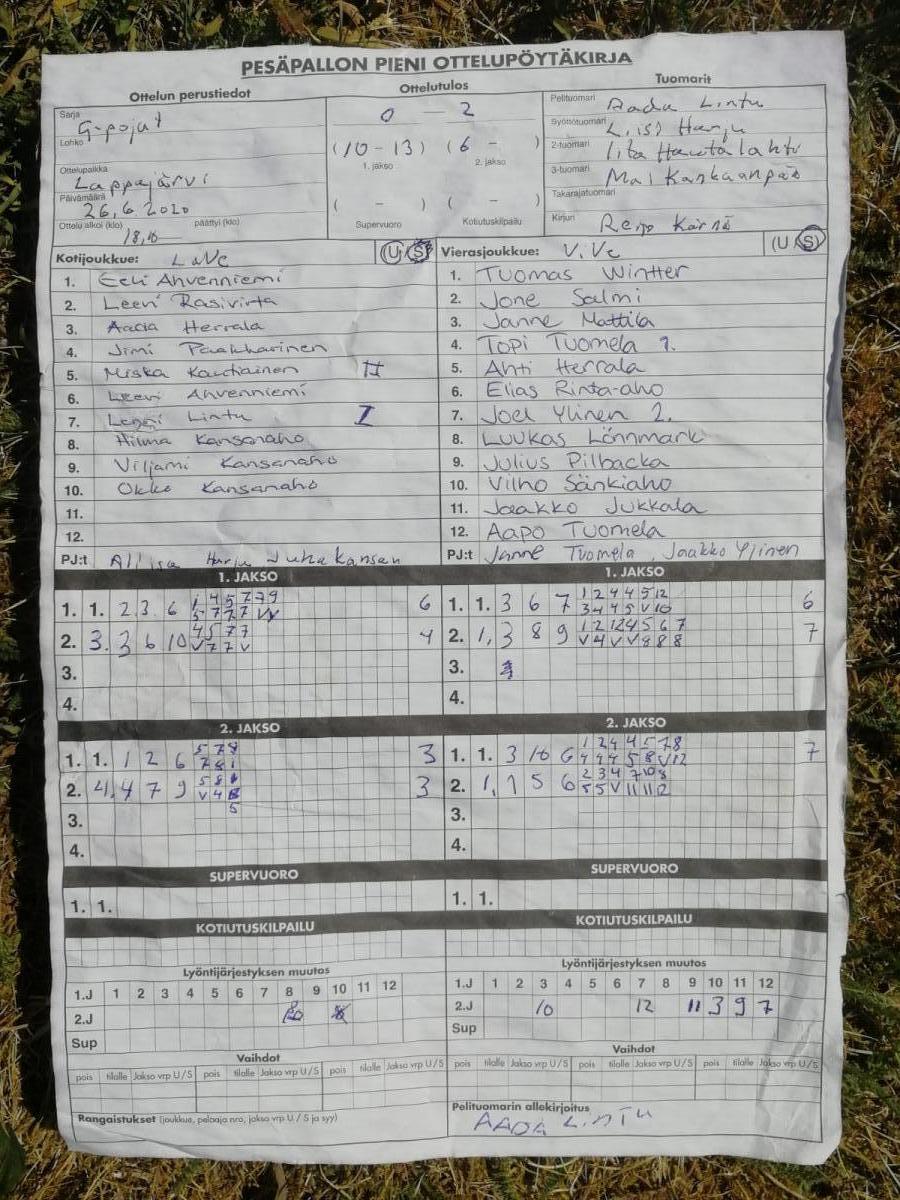 PESÄPALLON PIENI OTTELUPÖYTÄKIRJA
Ottelun perustiedot
Sarja
G-pojat
Lohko
Ottelupaikka
Lappajärvi
Päivämäärä
26.6.2020
Ottelu alkoi (klo) päättyi (klo)
Ottelutulos
0 – 2
(10 – 13) (6 – )
1. jakso 2. jakso
( – ) ( – )
Supervuoro Kotiutuskilpailu
Tuomarit
Pelituomari Aada Lintu
Syöttötuomari Harju
2-tuomari Iita Hautalahti
3-tuomari Mai Kankaanpää
Takarajatuomari
Kirjuri Reijo Kärnä
Kotijoukkue: LaVe U/S
1. Eeli Ahvenniemi
2. Leevi Rasivirta
3. Aada Herrala
4. Jimi
5. Miska Kautiainen II
6. Leevi Ahvenniemi
7. Lenni Lintu I
8. Hilma Kansanaho
9. Viljami Kansanaho
10. Okko Kansanaho
11.
12.
PJ:t Harju Juha Kansan
Vierasjoukkue: ViVe U/S
1. Tuomas Wintter
2. Jone Salmi
3. Janne Mattila
4. Topi Tuomela 1.
5. Ahti Herrala
6. Elias Rinta-aho
7. Joel Ylinen 2.
8. Luukas Lönnmark
9. Julius Pilbacka
10. Vilho Sänkiaho
11. Jaakko Jukkala
12. Aapo Tuomela
PJ:t Janne Tuomela Jaakko Ylinen
1. JAKSO
1. 1. 2 3 6 6
2. 3. 3 6 10 4
3.
4.
1. JAKSO
1. 1. 3 6 7 1 2 4 4 5 12 6
3 4 4 5 V 10
2. 1, 3 8 9 1 2 12 4 5 6 7 7
V 4 V V 8 8 8
3.
4.
2. JAKSO
1. 1. 1 2 6 3
2. 4. 4 7 9 3
3.
4.
2. JAKSO
1. 1. 3 10 6 1 2 4 4 5 7 8 7
4 4 4 5 8 V 12
2. 1, 1 5 6 2 3 4 7 10 8
5 5 V 11 11 12
3.
4.
SUPERVUORO
1. 1.
SUPERVUORO
1. 1.
KOTIUTUSKILPAILU
KOTIUTUSKILPAILU
Lyöntijärjestyksen muutos
1.J 1 2 3 4 5 6 7 8 9 10 11 12
2.J
Sup
Lyöntijärjestyksen muutos
1.J 1 2 3 4 5 6 7 8 9 10 11 12
2.J 10 12 11 3 9 7
Sup
Vaihdot
pois tilalle Jakso vrp U/S pois tilalle Jakso vrp U/S pois tilalle Jakso vrp U/S
Vaihdot
pois tilalle Jakso vrp U/S pois tilalle Jakso vrp U/S pois tilalle Jakso vrp U/S
Rangaistukset (joukkue, pelaaja nro, jakso vrp U / S ja syy)
Pelituomarin allekirjoitus
AADA LINTU